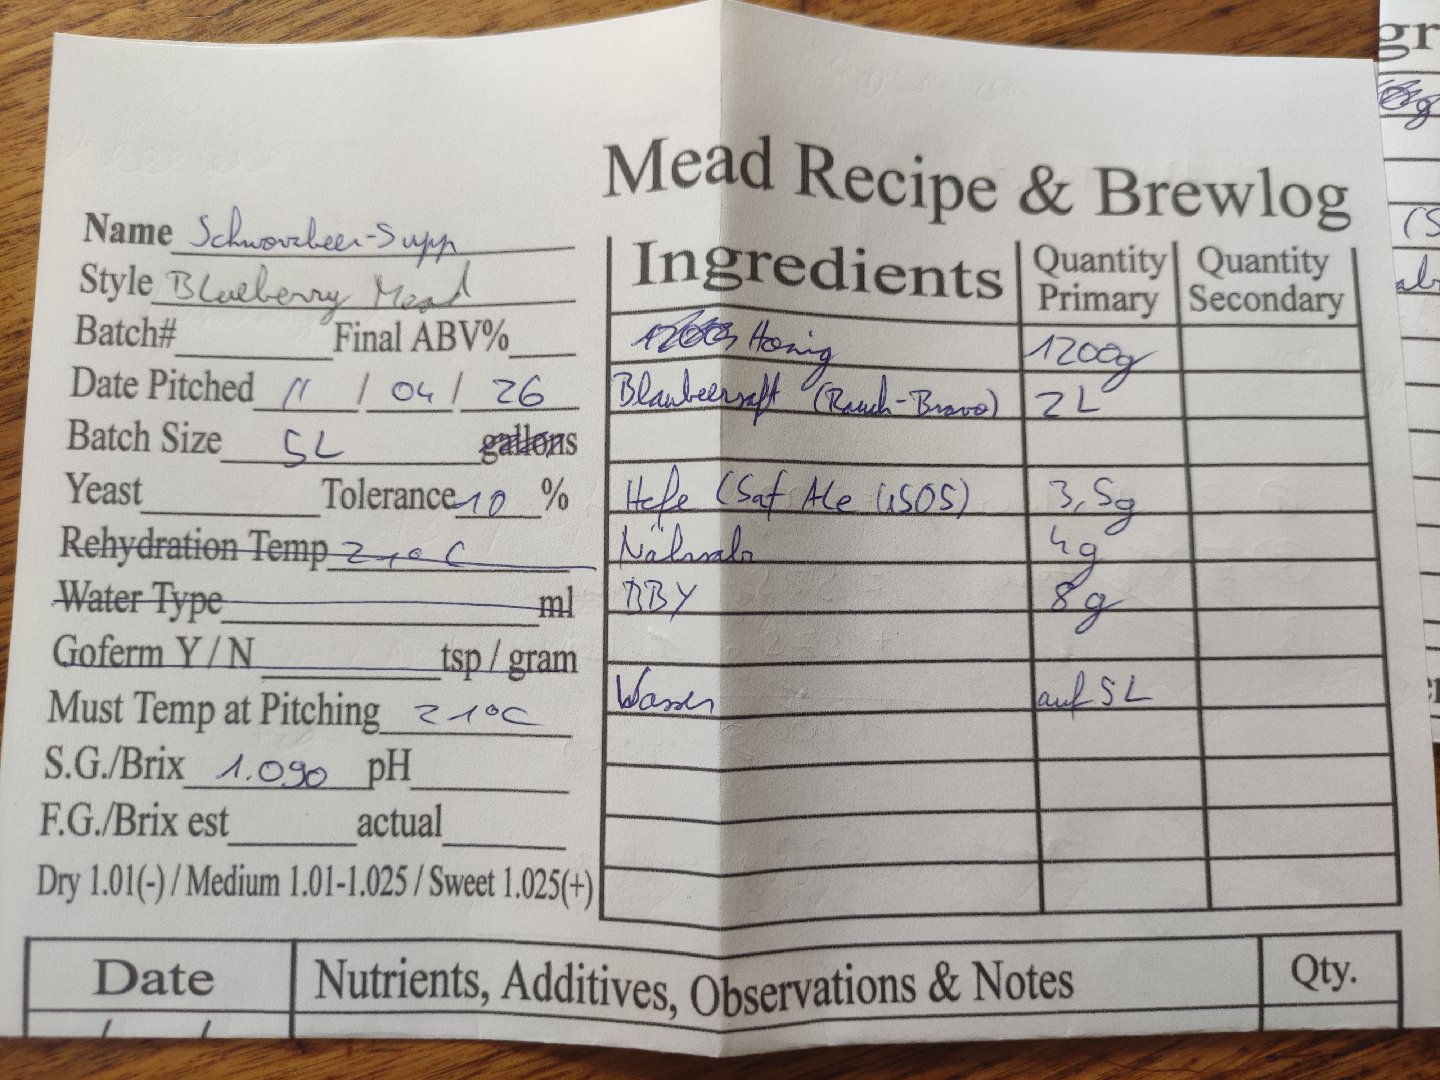 Mead Recipe & Brewlog
Name Schwarzbeer-Supp
Style Blueberry Mead
Batch# Final ABV%
Date Pitched 11 / 04 / 26
Batch Size 5L gallons
Yeast Tolerance 10 %
Rehydration Temp 21°C
Water Type ml
Goferm Y / N tsp / gram
Must Temp at Pitching 21°C
S.G./Brix 1.090 pH
F.G./Brix est actual
Dry 1.01(-) / Medium 1.01-1.025 / Sweet 1.025(+)
Ingredients Quantity Primary Quantity Secondary
Honig 1200g
Blaubeersaft (Rauch-Bravo) 2L
Hefe (Saf Ale US05) 3,5g
Nährsalz 4g
BBY 8g
Wasser auf 5L
Date Nutrients, Additives, Observations & Notes Qty.